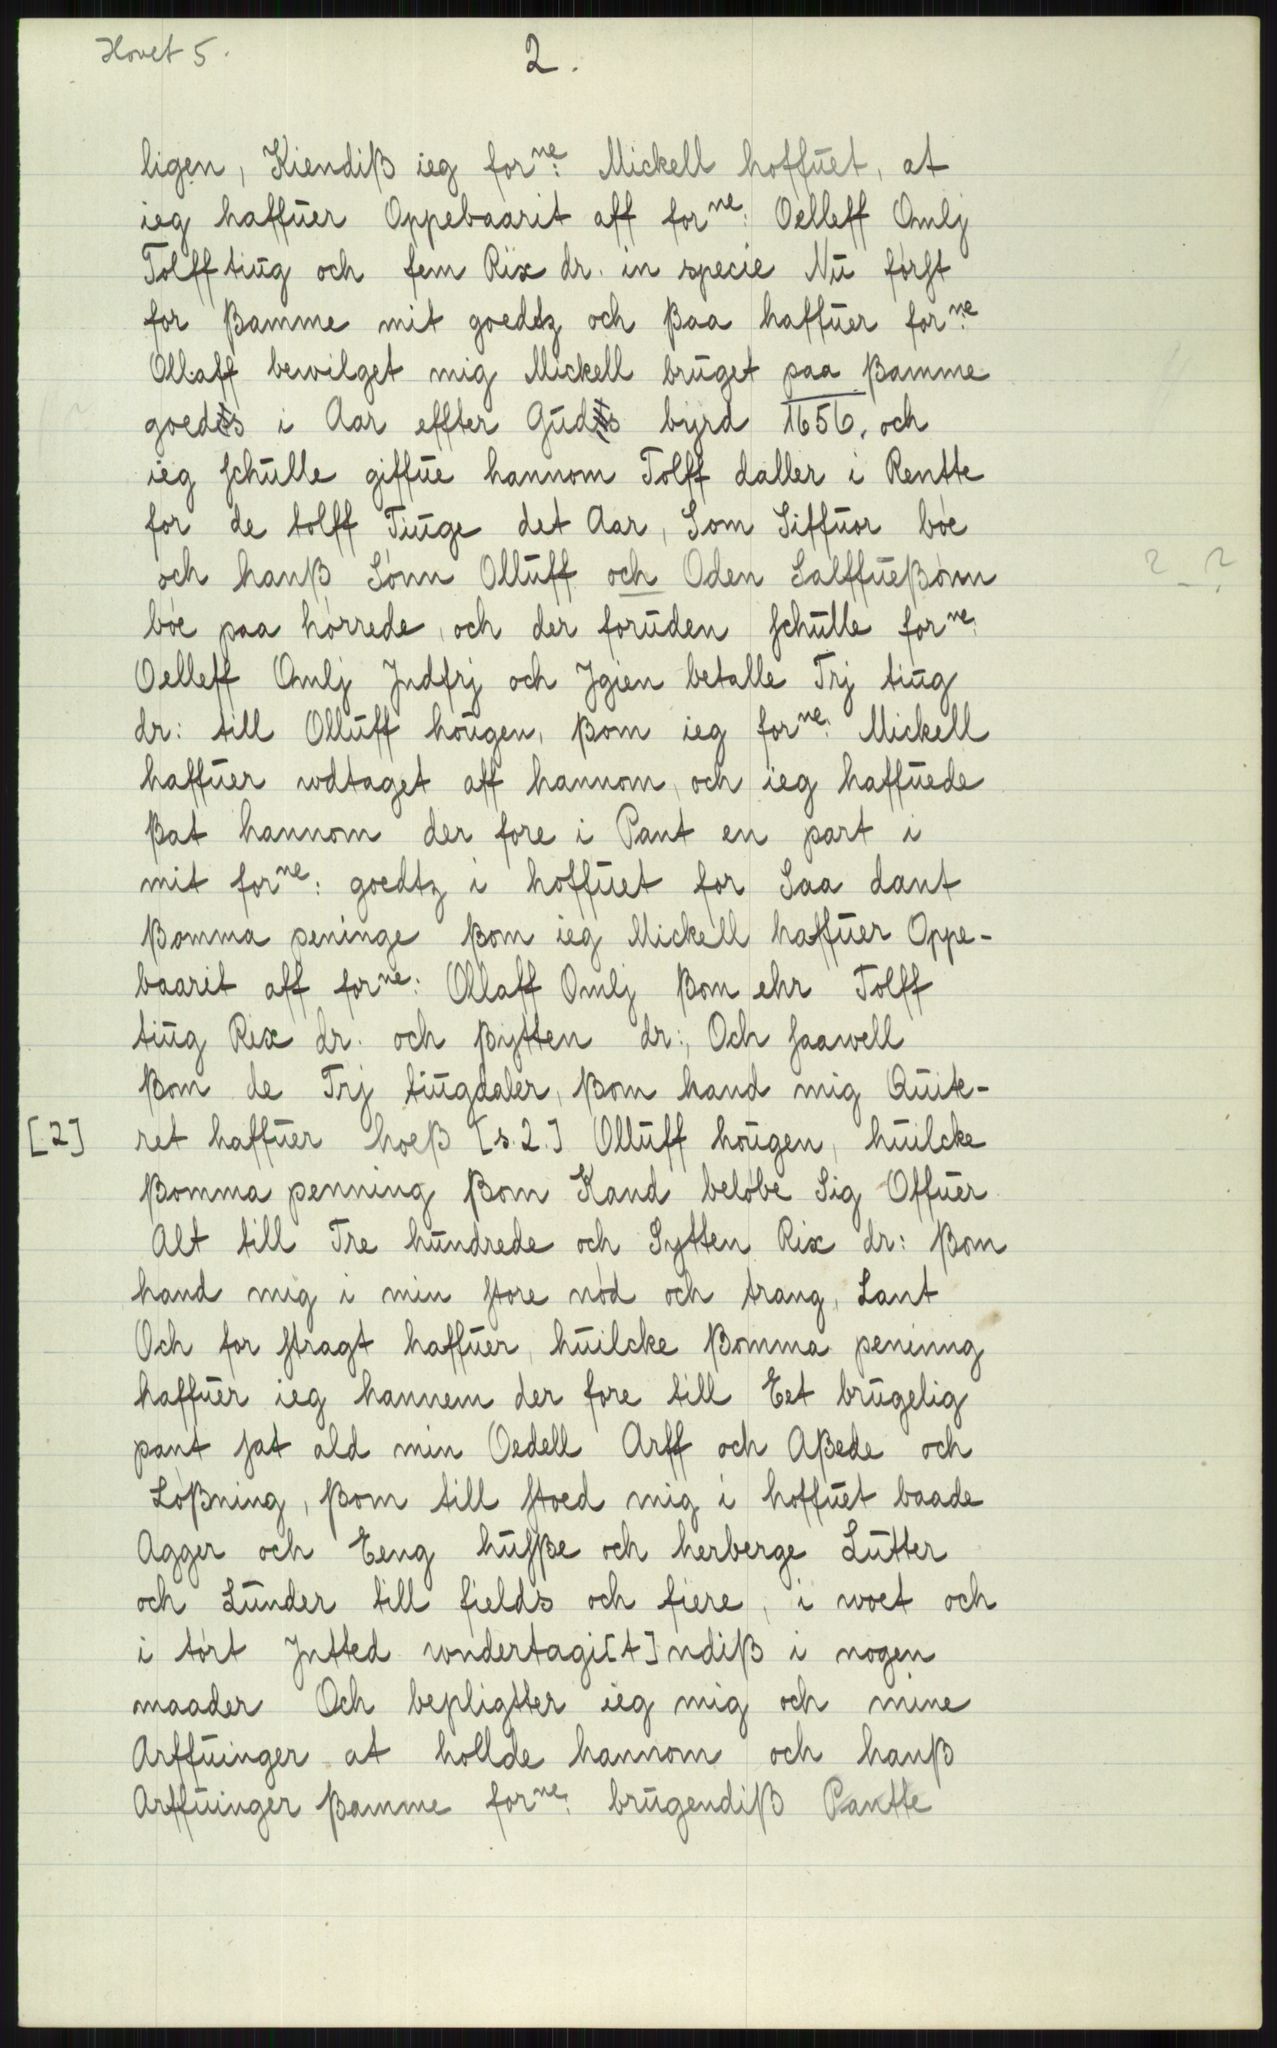 Hovet 5.
2.
ligen, Kiendiß ieg forne: Mickell hoffuet, at
ieg haffuer Oppebaarit aff forne: Oelleff Omlj
Tolfftiug och fem Rix dr. in specie Nu först
for ßamme mit goedtz och ßaa haffuer forne
Ollaff bewilget mig Mickell bruget paa ßamme
goeds i Aar effter Guds byrd 1656, och
ieg schulle giffue hannom Tolff daller i Rentte
for de tolff Tiuge det Aar, Som Siffuor böe
och hanß Sönn Olluff och Oden Salffueßönn
böe paa hörrede, och der foruden schulle forne:
Oelleff Omlj Jndfrj och Jgien betalle Trj tiug
dr: till Olluff hougen, ßom ieg forne: Mickell
haffuer wdtaget aff hannom, och ieg haffuede
ßat hannom der fore i Pant en part i
mit forne: goedtz i hoffuet for Saa dant
ßomma peninge ßom ieg Mickell haffuer Oppe-
baarit aff forne: Ollaff Omlj ßom ehr Tolff
tiug Rix dr. och ßytten dr:, Och saawell
ßom de Trj tiugdaler, ßom hand mig Quit-
[2] ret haffuer hoeß [s. 2.] Olluff hougen, huilcke
ßomma penning ßom Kand belöbe Sig Offuer
Alt till Tre hundrede och Sytten Rix dr: ßom
hand mig i min store nöd och trang, Lant
Och for stragt haffuer, huilcke ßomma pening
haffuer ieg hannem der fore till Eet brugelig
pant sat ald min Oedell Arff och Aßede och
Lößning, ßom till stoed mig i hoffuet baade
Agger och Eeng hußße och herberge Lutter
och Lunder till fields och fiere, i woet och
i tört Jntted wndertagi[t]ndiß i nogen
maader Och bepligtter ieg mig och mine
Arffuinger at hollde hannom och hanß
Arffuinger ßamme forne: brugendiß Pantte